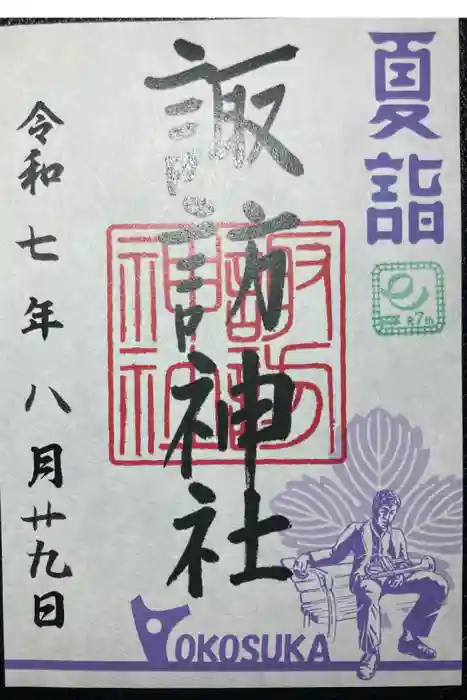 夏詣
R7th
諏訪神社
諏訪神社
令和七年八月廿九日
YOKOSUKA